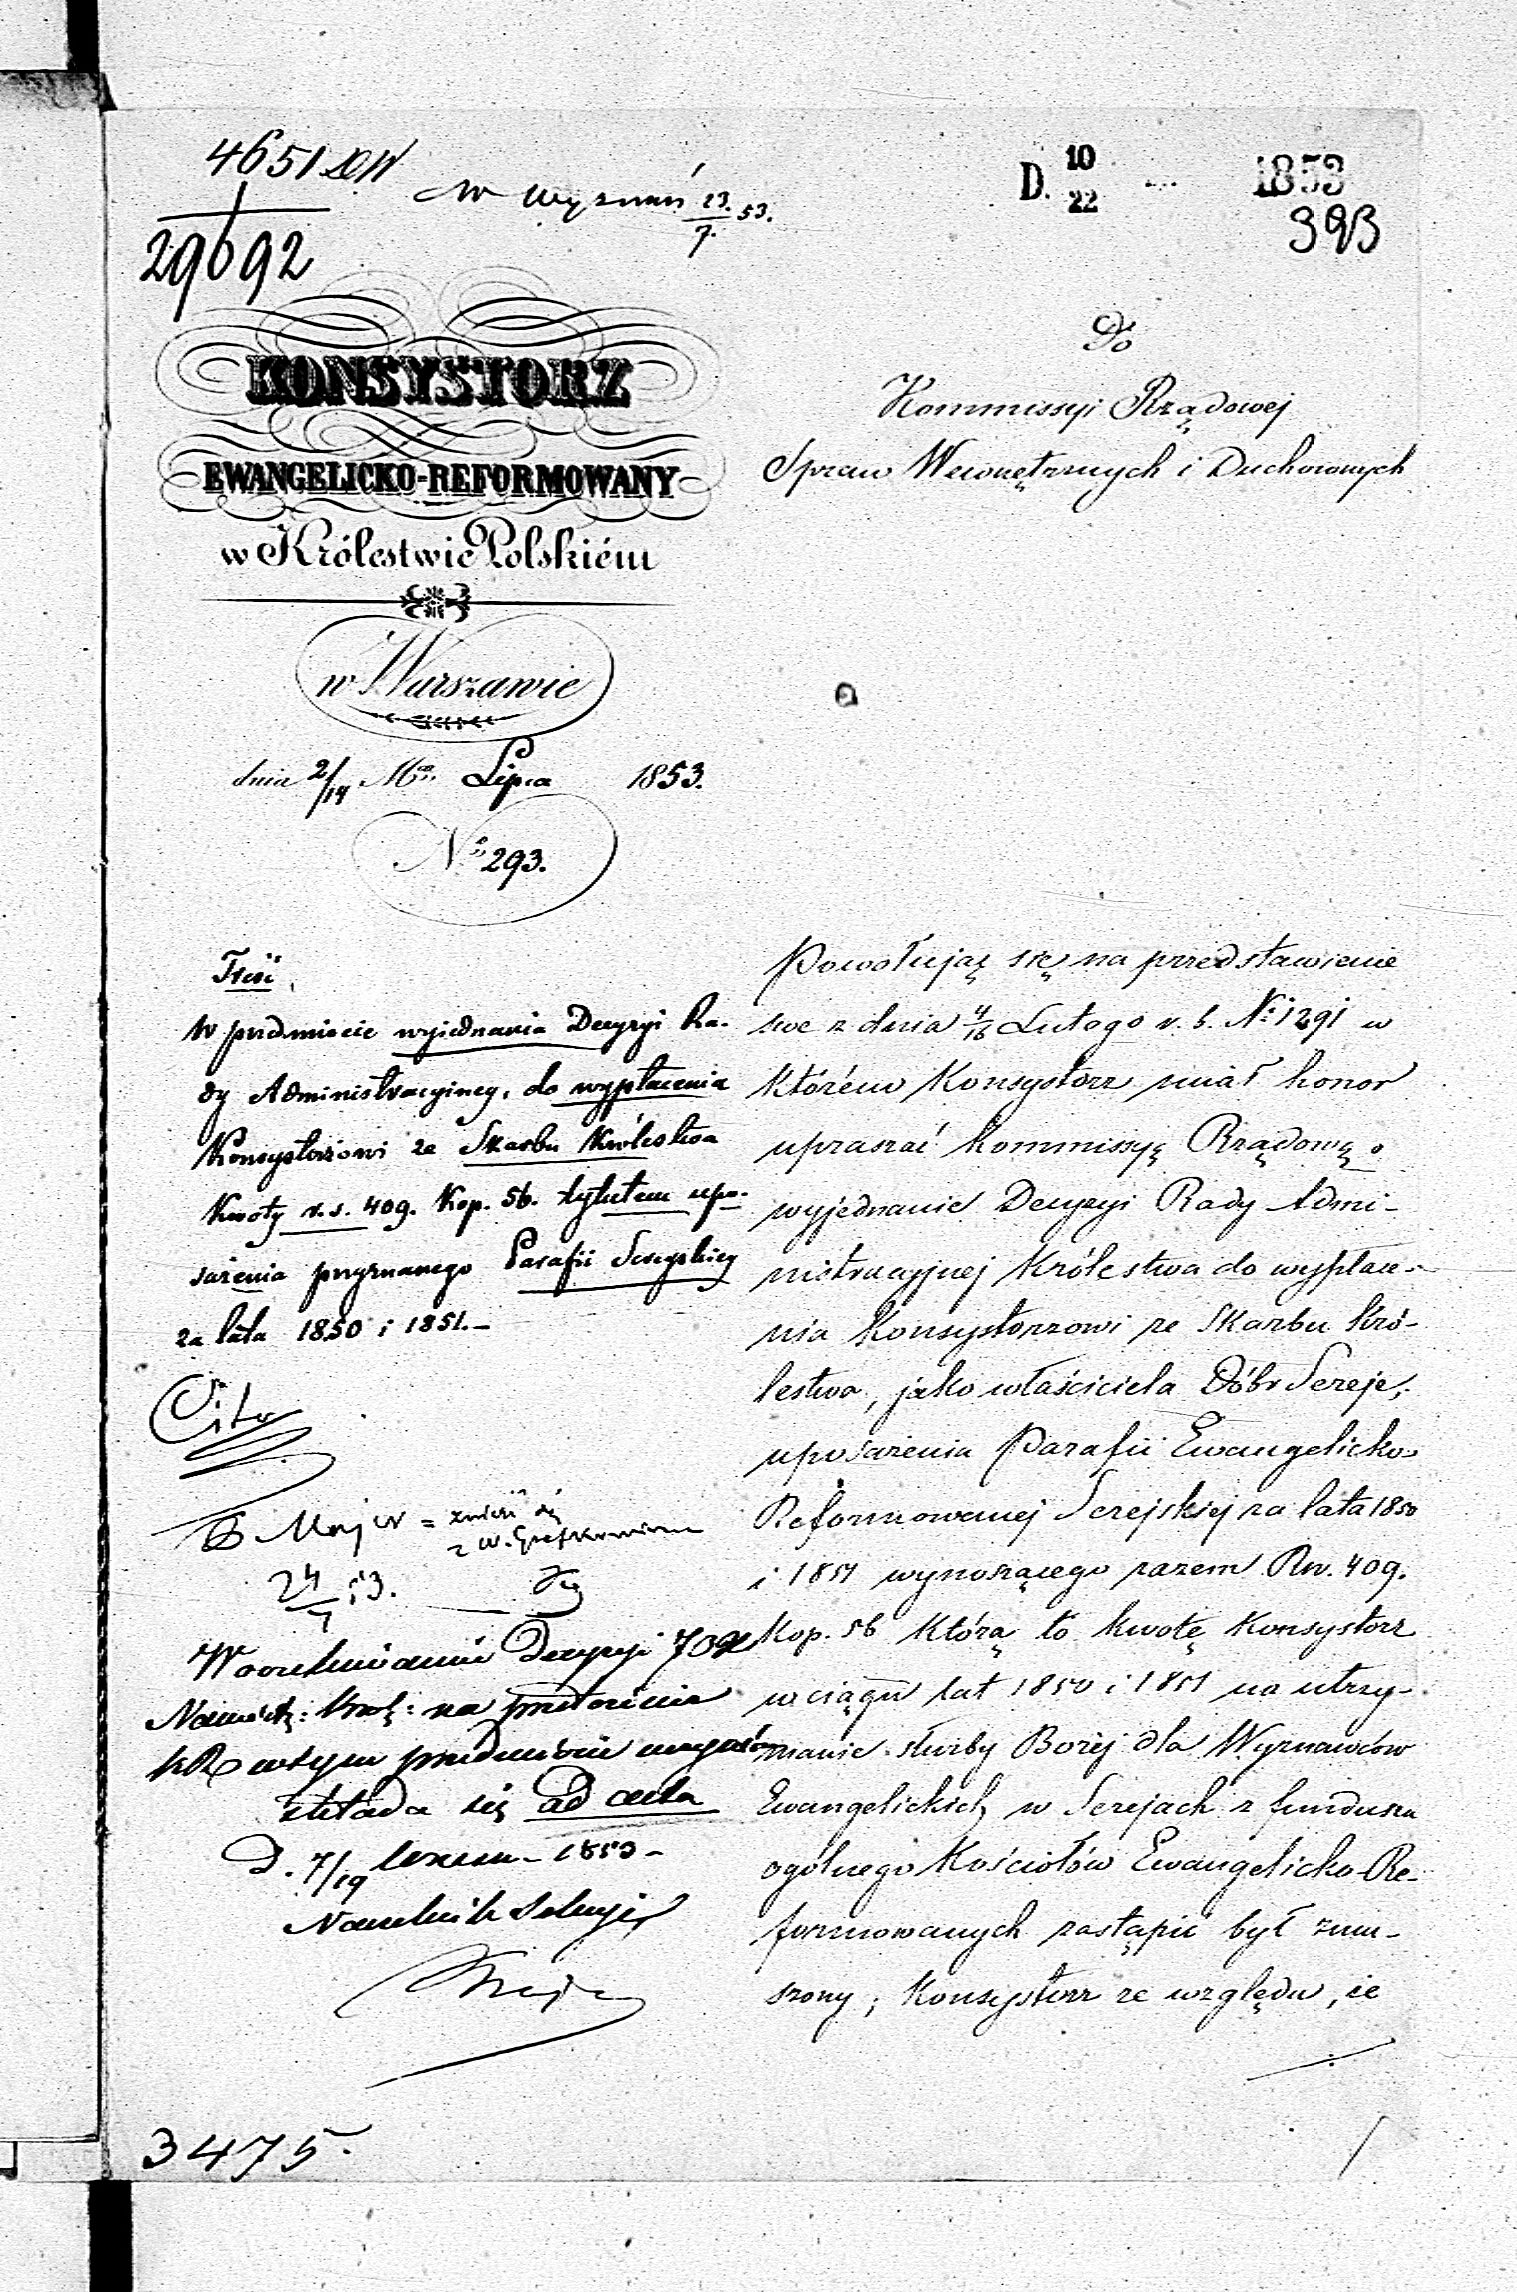 4651
29692
W Wyznań 23./7. 53.
D. 10/22 1853
393
KONSYSTORZ
EWANGELICKO-REFORMOWANY
w Królestwie Polskiém
w Warszawie
dnia 2/14 Mca Lipca 1853.
No 293.
Do
Kommissyi Rządowej
Spraw Wewnętrznych i Duchownych
Treść
W przedmiocie wyjednania Decyzyi Ra-
dy Administracyjney, do wypłacenia
Konsystorzowi ze Skarbu Królestwa
Kwoty r. s. 409. Kop. 56. tytułem upo-
sażenia przyznanego Parafii Sereyskiey
za lata 1850 i 1851.-
Cito
24/7 53.
W oczekiwaniu Decyzyi
na
w tym przedmiocie
składa się ad acta
D. 7/19 1853 -
Naczelnik Sekcyi
3475.
Powołując się na przedstawienie
swe z dnia 4/16 Lutego r. b. No 1291 w
którém Konsystorz miał honor
upraszać Kommissyę Rządową o
wyjednanie Decyzyi Rady Admi-
nistracyjnej Królestwa do wypłace-
nia Konsystorzowi ze Skarbu Kró-
lestwa, jako właściciela Dóbr Sereje,
uposażenia Parafii Ewangelicko
Reformowanej Serejskiej za lata 1850
i 1851 wynoszącego razem Rsr. 409.
Kop. 56 którą to kwotę Konsystorz
w ciągu lat 1850 i 1851 na utrzy-
manie służby Bożéj dla Wyznawców
Ewangelickich w Serejach z funduszu
ogólnego Kościołów Ewangelicko-Re-
formowanych zastąpić był zmu-
szony; Konsystorz ze względu, że